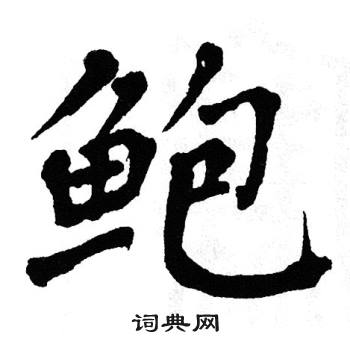 鲍
词典网